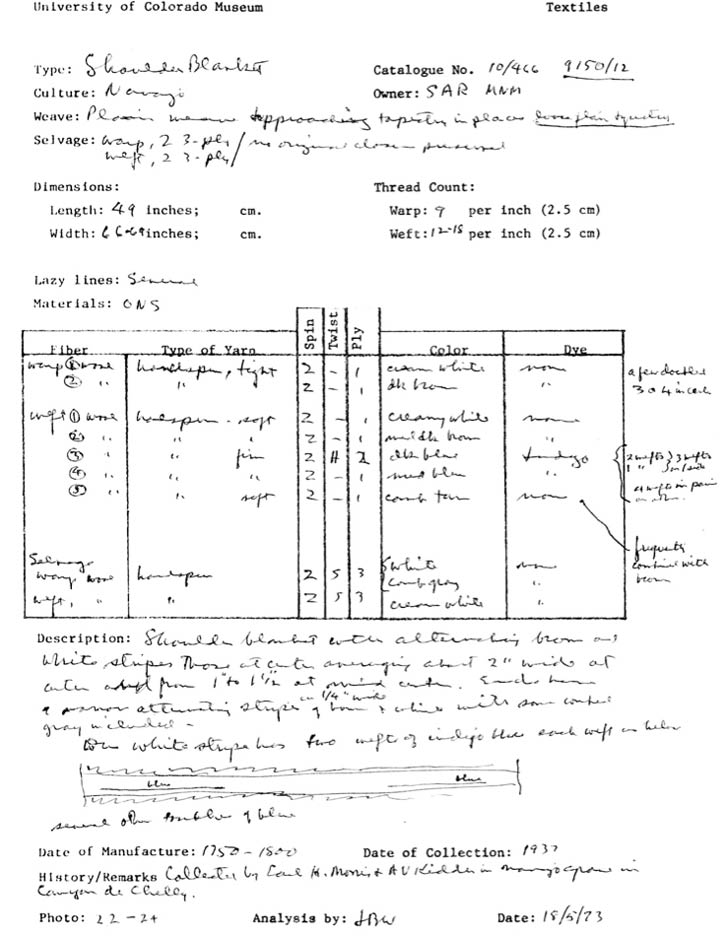 University of Colorado Museum Textiles
Type: Shoulder Blanket Catalogue No. 10/466 9150/12
Culture: Navajo Owner: SAR MNM
Weave: Plain weave approaching tapestry in places loose plain tapestry
Selvage: warp, 2 3-ply / no original closure preserved
weft, 2 3-ply
Dimensions: Thread Count:
Length: 49 inches; cm. Warp: 9 per inch (2.5 cm)
Width: inches; cm. Weft: 12-18 per inch (2.5 cm)
Lazy lines: Several
Materials: ONS
Fiber Type of Yarn Spin Twist Ply Color Dye
warp ① wool handspun, tight Z - 1 cream white none a few doubled
② " " Z - 1 dk brown " 3 or 4 in each
weft ① wool handspun - soft Z - 1 creamy white none
② " " " Z - 1 brown "
③ " " firm Z # 2 dk blue Indigo 2 wefts } 3 wefts
④ " " Z - 1 med blue " 1 "
⑤ " " soft Z - 1 comb tan none
frequently
combined with
brown
Selvage
warp wool handspun Z S 3 { white none
comb gray "
weft, " " Z S 3 cream white "
Description: Shoulder blanket with alternating brown and
white stripes Those at center averaging about 2" wide at
from 1" to 1 1/2" at center. Ends have
in 1/4" wide
alternating stripes of brown & white with some combed
gray included -
One white stripe has two wefts of indigo blue each weft as below
blue blue
several other of blue
Date of Manufacture: 1750 - 1800 Date of Collection: 193?
History/Remarks Collected by Earl H. Morris & AV Kidder in Navajo grave in
Canyon de Chelly.
Photo: 22-24 Analysis by: JBW Date: 18/5/73